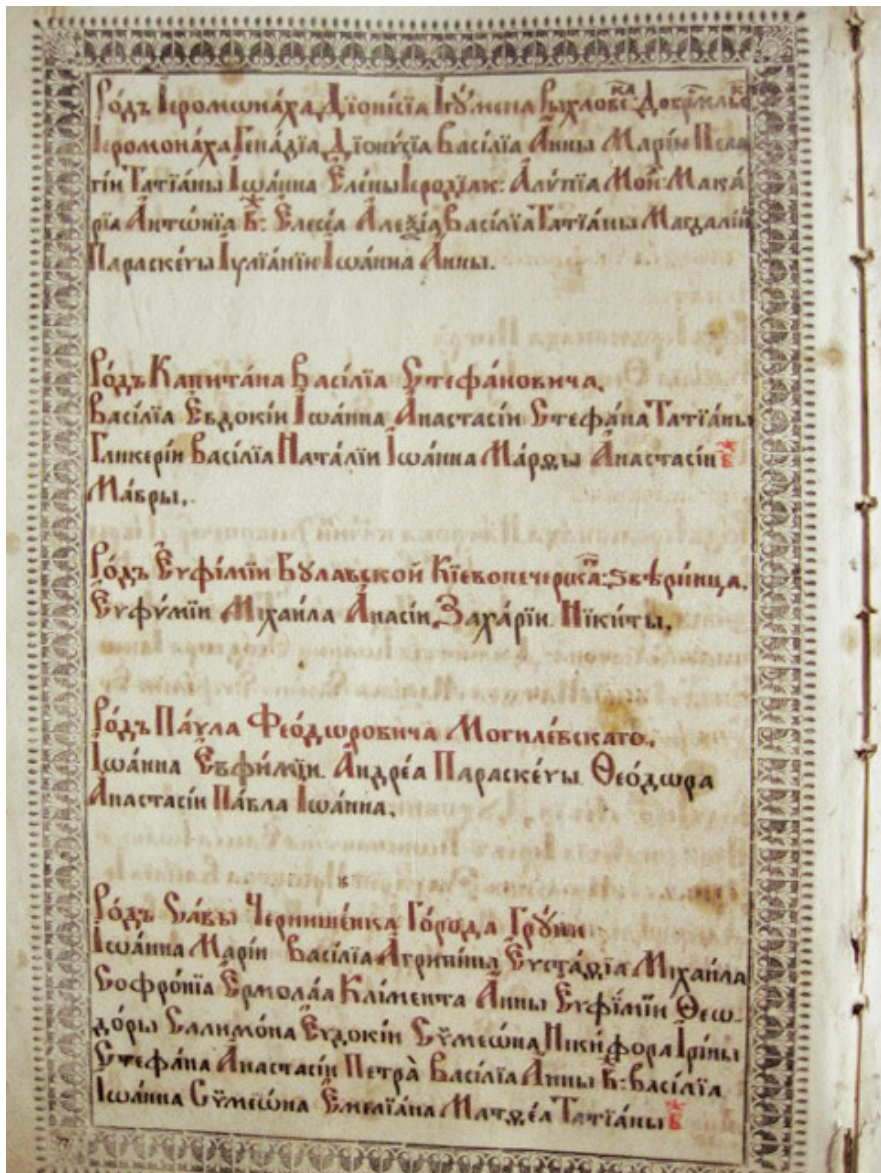 Ро́дъ Іеромѡна́ха Дїонѵ́сїа Ігꙋ́мена Рыхловс:
Іеромона́ха Гена́дїа Дїонѵ́сїа Васі́лїа А́нны Марі́и Пела
гі́и Татїа́ны Іѡа́нна Еле́ны Іеродїак: Алѵ́пїа Мон: Мака́
рїа Анто́нїа в҃: Елесе́а Алеѯі́а Васі́лїа Татїа́ны Магдали́
Параске́ѵы Іꙋлїа́нїи Іѡа́нна А́нны.
Ро́дъ Капита́на Васі́лїа Стефа́новича.
Васі́лїа Евдокі́и Іѡа́нна Анастасі́и Стефа́на Татїа́ны
Гликері́и Васі́лїа Ната́лїи Іѡа́нна Ма́рѳы Анастасі́и в҃
Ма́вры.
Ро́дъ Еѵфі́мїи Бꙋла́вской Кїевопечерска: Ѕвѣри́нца.
Еѵфѵ́мїи Міхаи́ла Ана́сіи Заха́рїи Ники́ты.
Ро́дъ Па́ѵла Феѡ́дѡровича Могиле́вскаго.
Іѡа́нна Евфи́мїи Андре́а Параске́ѵы Ѳео́дѡра
Анастасі́и Па́вла Іѡа́нна.
Ро́дъ Са́вы Чернише́нка Го́рода Грꙋ́ни
Іѡа́нна Марі́и Васі́лїа Агрипи́ны Еѵста́ѳїа Міхаи́ла
Софро́нїа Ермола́а Кли́мента А́нны Еѵфі́мїи Ѳеѡ-
до́ры Салимо́на Еѵдокі́и Сѵмеѡ́на Ники́фора Ірі́ны
Стефа́на Анастасі́и Петра̀ Васі́лїа А́нны в҃: Васі́лїа
Іѡа́нна Сѵмеѡ́на Емелїа́на Матѳе́а Татїа́ны в҃